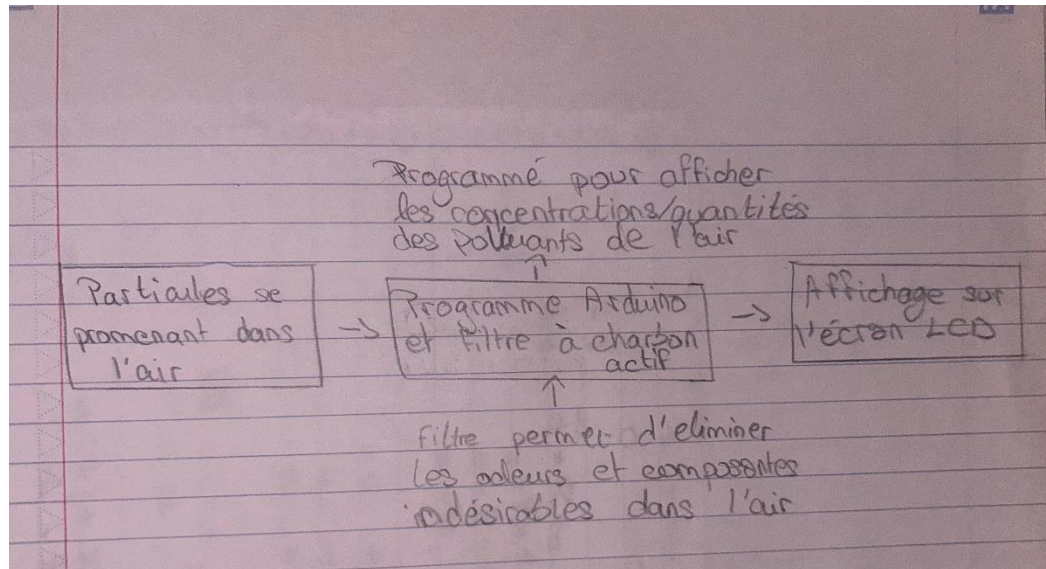 Programmé pour afficher
les concentrations/quantités
des polluants de l'air
Particules se
promenant dans
l'air
→
Programme Arduino
et filtre à charbon
actif
→
Affichage sur
l'écran LCD
filtre permet d'eliminer
les odeurs et composantes
indésirables dans l'air